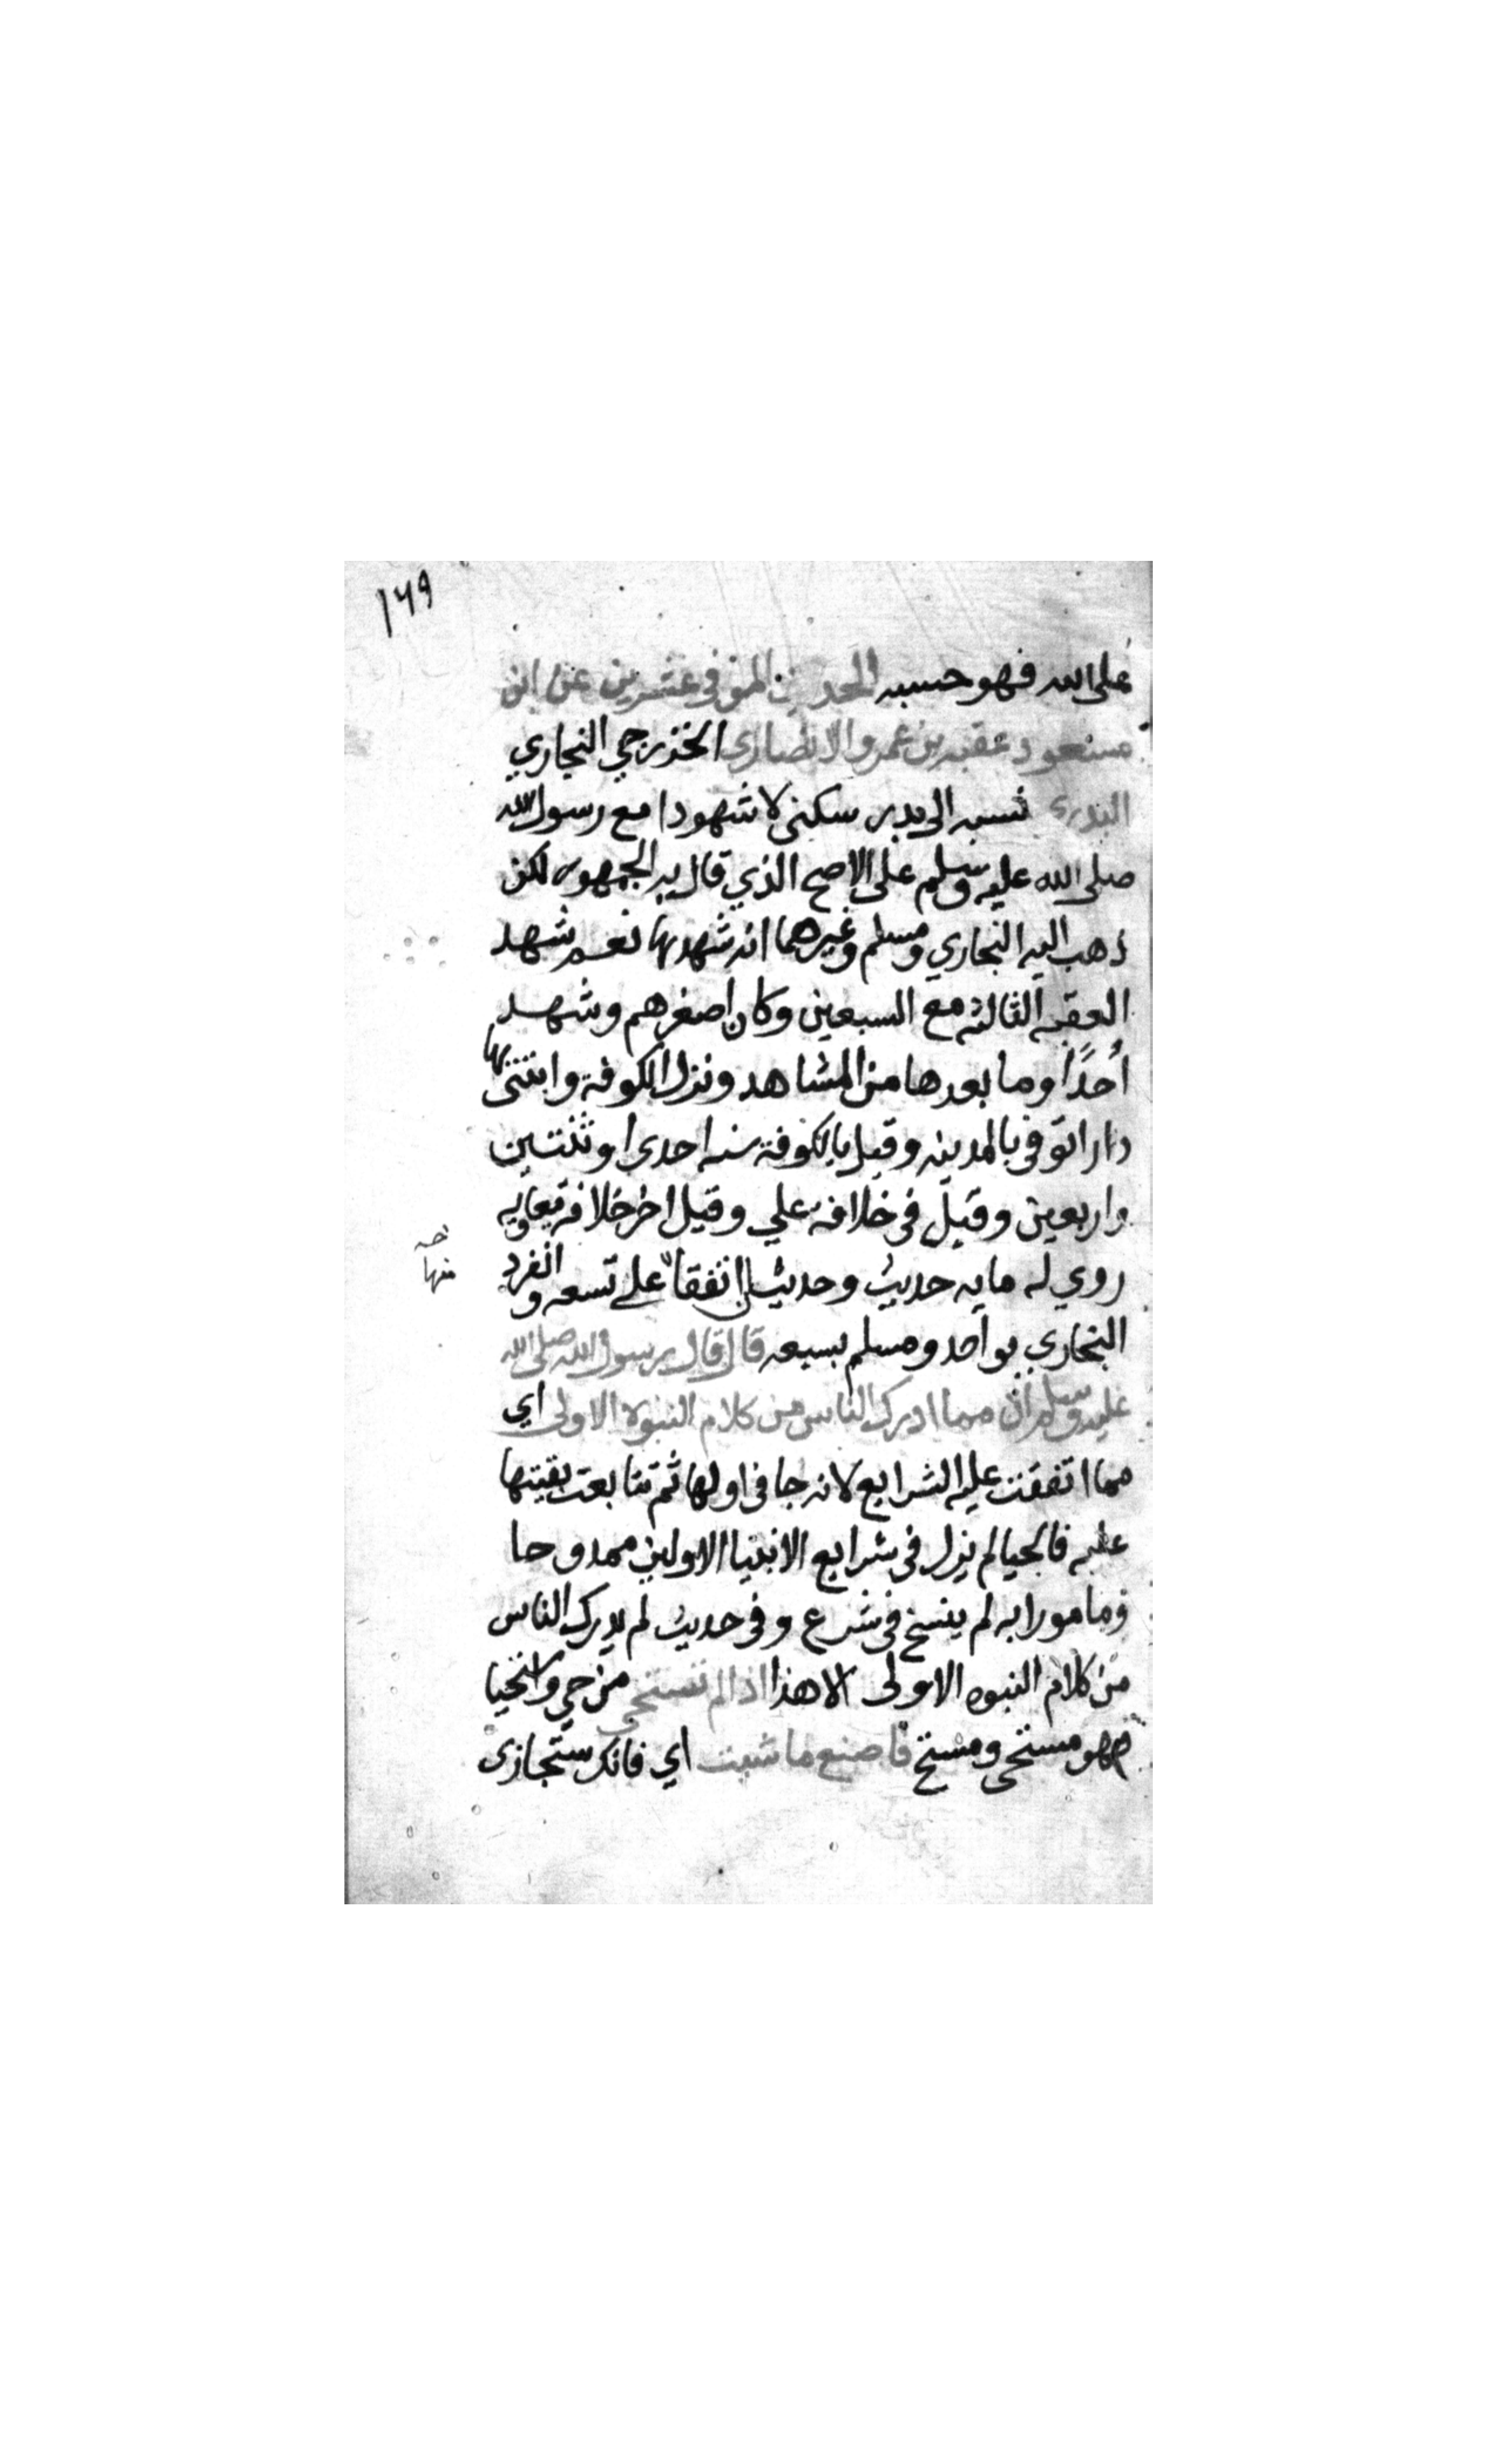 ١٦٩
على الله فهو حسبه الحديث الموفى عشرين عن ابن
مسعود عقبه بن عمرو الانصاري الخزرجي النجاري
البدري نسبه الى بدر سكنى لا شهودا مع رسول الله
صلى الله عليه وسلم على الاصح الذي قال به الجمهور لكن
ذهب اليه البخاري ومسلم وغيرهما انه شهدها نعم شهد
العقبه الثالثه مع السبعين وكان اصغرهم وشهد
أحدًا وما بعدها من المشاهد ونزل الكوفة وابتنى بها
دارا توفي بالمدينه وقيل بالكوفة سنه احدى او ثنتين
واربعين وقيل في خلافه علي وقيل اخر خلافة معاويه
روي له مايه حديث وحديثان اتفقا على تسعه وانفرد
منها
البخاري بواحد ومسلم بسبعه قال قال رسول الله صلى الله
عليه وسلم ان مما ادرك الناس من كلام النبوة الاولى اي
مما اتفقت عليه الشرايع لانه جا في اولها ثم تتابعت بقيتها
عليه فالحيا لم يزل في شرايع الانبيا الاولين ممدوحا
ومامورا به لم ينسخ في شرع وفي حديث لم يدرك الناس
من كلام النبوه الاولى الا هذا اذا لم تستحي من حي واستحيا
فهو مستحي ومستح فاصنع ما شيت اي فانك ستجازى